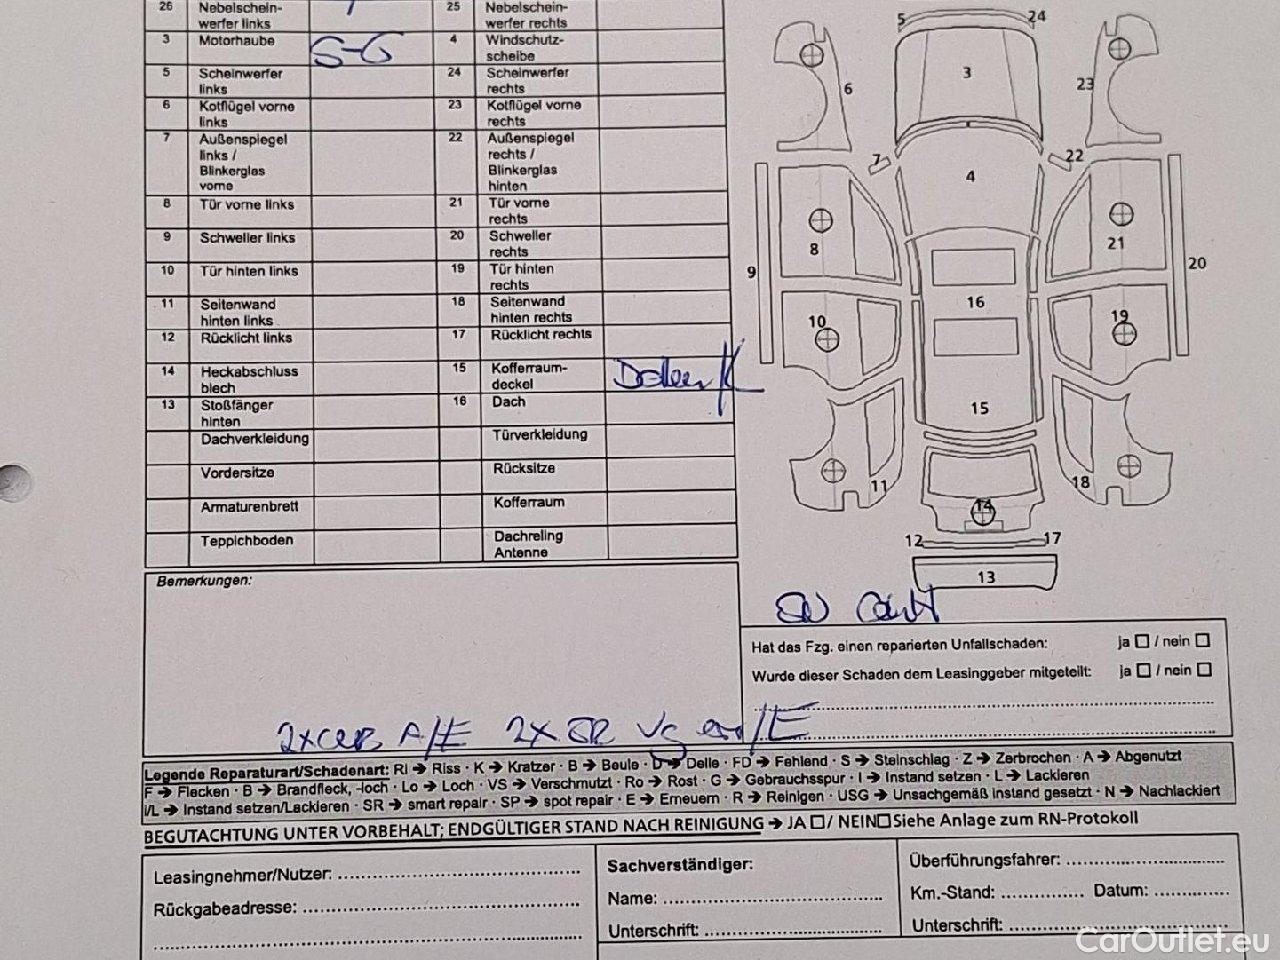 26 Nebelschein- 25 Nebelschein-
werfer links werfer rechts
3 Motorhaube S-G 4 Windschutz-
scheibe
5 Scheinwerfer 24 Scheinwerfer
links rechts
6 Kotflügel vorne 23 Kotflügel vorne
links rechts
7 Außenspiegel 22 Außenspiegel
links / rechts /
Blinkerglas Blinkerglas
vorne hinten
8 Tür vorne links 21 Tür vorne
rechts
9 Schweller links 20 Schweller
rechts
10 Tür hinten links 19 Tür hinten
rechts
11 Seitenwand 18 Seitenwand
hinten links hinten rechts
12 Rücklicht links 17 Rücklicht rechts
14 Heckabschluss 15 Kofferraum-
blech deckel
13 Stoßfänger 16 Dach
hinten
Dachverkleidung Türverkleidung
Vordersitze Rücksitze
Armaturenbrett Kofferraum
Teppichboden Dachreling
Antenne
5 24
3
6 23
7 22
4
8 21
9 20
16
10 19
15
11 18
14
12 17
13
Bemerkungen:
Hat das Fzg. einen reparierten Unfallschaden: ja / nein
Wurde dieser Schaden dem Leasinggeber mitgeteilt: ja / nein
Legende Reparaturart/Schadenart: RI → Riss · K → Kratzer · B → Beule · D → Delle · FD → Fehlend · S → Steinschlag · Z → Zerbrochen · A → Abgenutzt
F → Flecken · B → Brandfleck, -loch · Lo → Loch · VS → Verschmutzt · Ro → Rost · G → Gebrauchsspur · I → Instand setzen · L → Lackieren
I/L → Instand setzen/Lackieren · SR → smart repair · SP → spot repair · E → Erneuern · R → Reinigen · USG → Unsachgemäß instand gesetzt · N → Nachlackiert
BEGUTACHTUNG UNTER VORBEHALT; ENDGÜLTIGER STAND NACH REINIGUNG → JA / NEIN Siehe Anlage zum RN-Protokoll
Leasingnehmer/Nutzer:
Rückgabeadresse:
Sachverständiger:
Name:
Unterschrift:
Überführungsfahrer:
Km.-Stand: Datum:
Unterschrift:
CarOutlet.eu